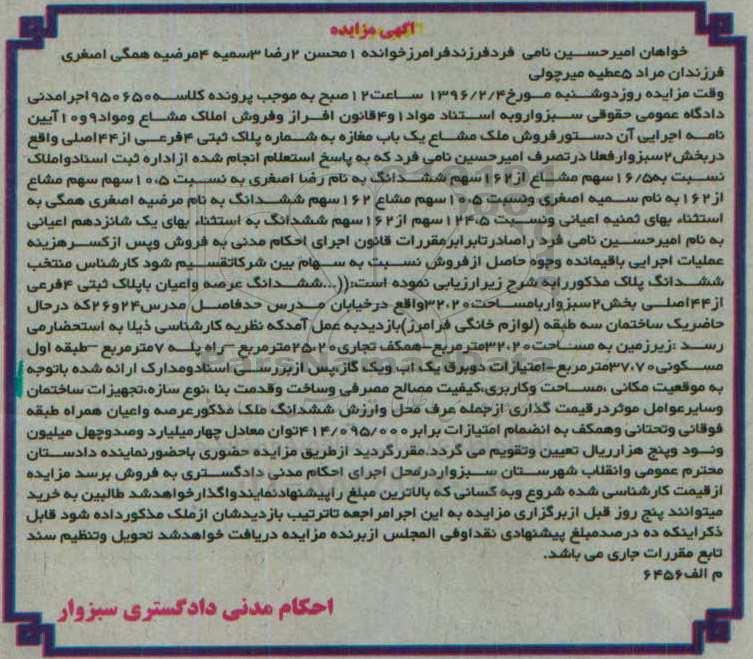 آگهی مزایده
خواهان امیرحسین نامی فردفرزندفرامرزخوانده ۱محسن ۲رضا ۳سمیه ۴مرضیه همگی اصغری
فرزندان مراد ۵عطیه میرچولی
وقت مزایده روزدوشنبه مورخ۱۳۹۶/۲/۴ ساعت۱۲صبح به موجب پرونده کلاسه۹۵۰۶۵۰اجرامدنی
دادگاه عمومی حقوقی سبزواروبه استناد مواد۱و۴قانون افراز وفروش املاک مشاع ومواد۹و۱۰آیین
نامه اجرایی آن دستورفروش ملک مشاع یک باب مغازه به شماره پلاک ثبتی ۴فرعی از۴۴اصلی واقع
دربخش۲سبزوارفعلا درتصرف امیرحسین نامی فرد که به پاسخ استعلام انجام شده ازاداره ثبت اسنادواملاک
نسبت به۱۶/۵سهم مشاع از۱۶۲سهم ششدانگ به نام رضا اصغری به نسبت ۱۰،۵سهم سهم مشاع
از۱۶۲به نام سمیه اصغری ونسبت ۱۰،۵سهم مشاع ۱۶۲سهم ششدانگ به نام مرضیه اصغری همگی به
استثناء بهای ثمنیه اعیانی ونسبت ۱۲۴،۵سهم از۱۶۲سهم ششدانگ به استثناء بهای یک شانزدهم اعیانی
به نام امیرحسین نامی فرد راصادرتابرابرمقررات قانون اجرای احکام مدنی به فروش وپس ازکسرهزینه
عملیات اجرایی باقیمانده وجوه حاصل ازفروش نسبت به سهام بین شرکاتقسیم شود کارشناس منتخب
ششدانگ پلاک مذکوررابه شرح زیرارزیابی نموده است:((...ششدانگ عرصه واعیان باپلاک ثبتی ۴فرعی
از۴۴اصلی بخش۲سبزواربامساحت۳۲،۲۰واقع درخیابان مدرس حدفاصل مدرس۲۴و۲۶که درحال
حاضریک ساختمان سه طبقه (لوازم خانگی فرامرز)بازدیدبه عمل آمدکه نظریه کارشناسی ذیلا به استحضارمی
رسد :زیرزمین به مساحت۳۲،۲۰مترمربع-همکف تجاری۲۵،۲۰مترمربع-راه پله ۷مترمربع-طبقه اول
مسکونی۳۷،۷۰مترمربع-امتیازات دوبرق یک اب ویک گاز،پس ازبررسی اسنادومدارک ارائه شده باتوجه
به موقعیت مکانی ،مساحت وکاربری،کیفیت مصالح مصرفی وساخت وقدمت بنا ،نوع سازه،تجهیزات ساختمان
وسایرعوامل موثردرقیمت گذاری ازجمله عرف محل وارزش ششدانگ ملک مذکورعرصه واعیان همراه طبقه
فوقانی وتحتانی وهمکف به انضمام امتیازات برابر۴۱۴/۰۹۵/۰۰۰توان معادل چهارمیلیارد وصدوچهل میلیون
ونود وپنج هزارریال تعیین وتقویم می گردد.مقررگردید ازطریق مزایده حضوری باحضورنماینده دادستان
محترم عمومی وانقلاب شهرستان سبزواردرمحل اجرای احکام مدنی دادگستری به فروش برسد مزایده
ازقیمت کارشناسی شده شروع وبه کسانی که بالاترین مبلغ راپیشنهادنمایندواگذارخواهدشد طالبین به خرید
میتوانند پنج روز قبل ازبرگزاری مزایده به این اجرامراجعه تاترتیب بازدیدشان ازملک مذکورداده شود قابل
ذکراینکه ده درصدمبلغ پیشنهادی نقداوفی المجلس ازبرنده مزایده دریافت خواهدشد تحویل وتنظیم سند
تابع مقررات جاری می باشد.
م الف۶۴۵۶
احکام مدنی دادگستری سبزوار